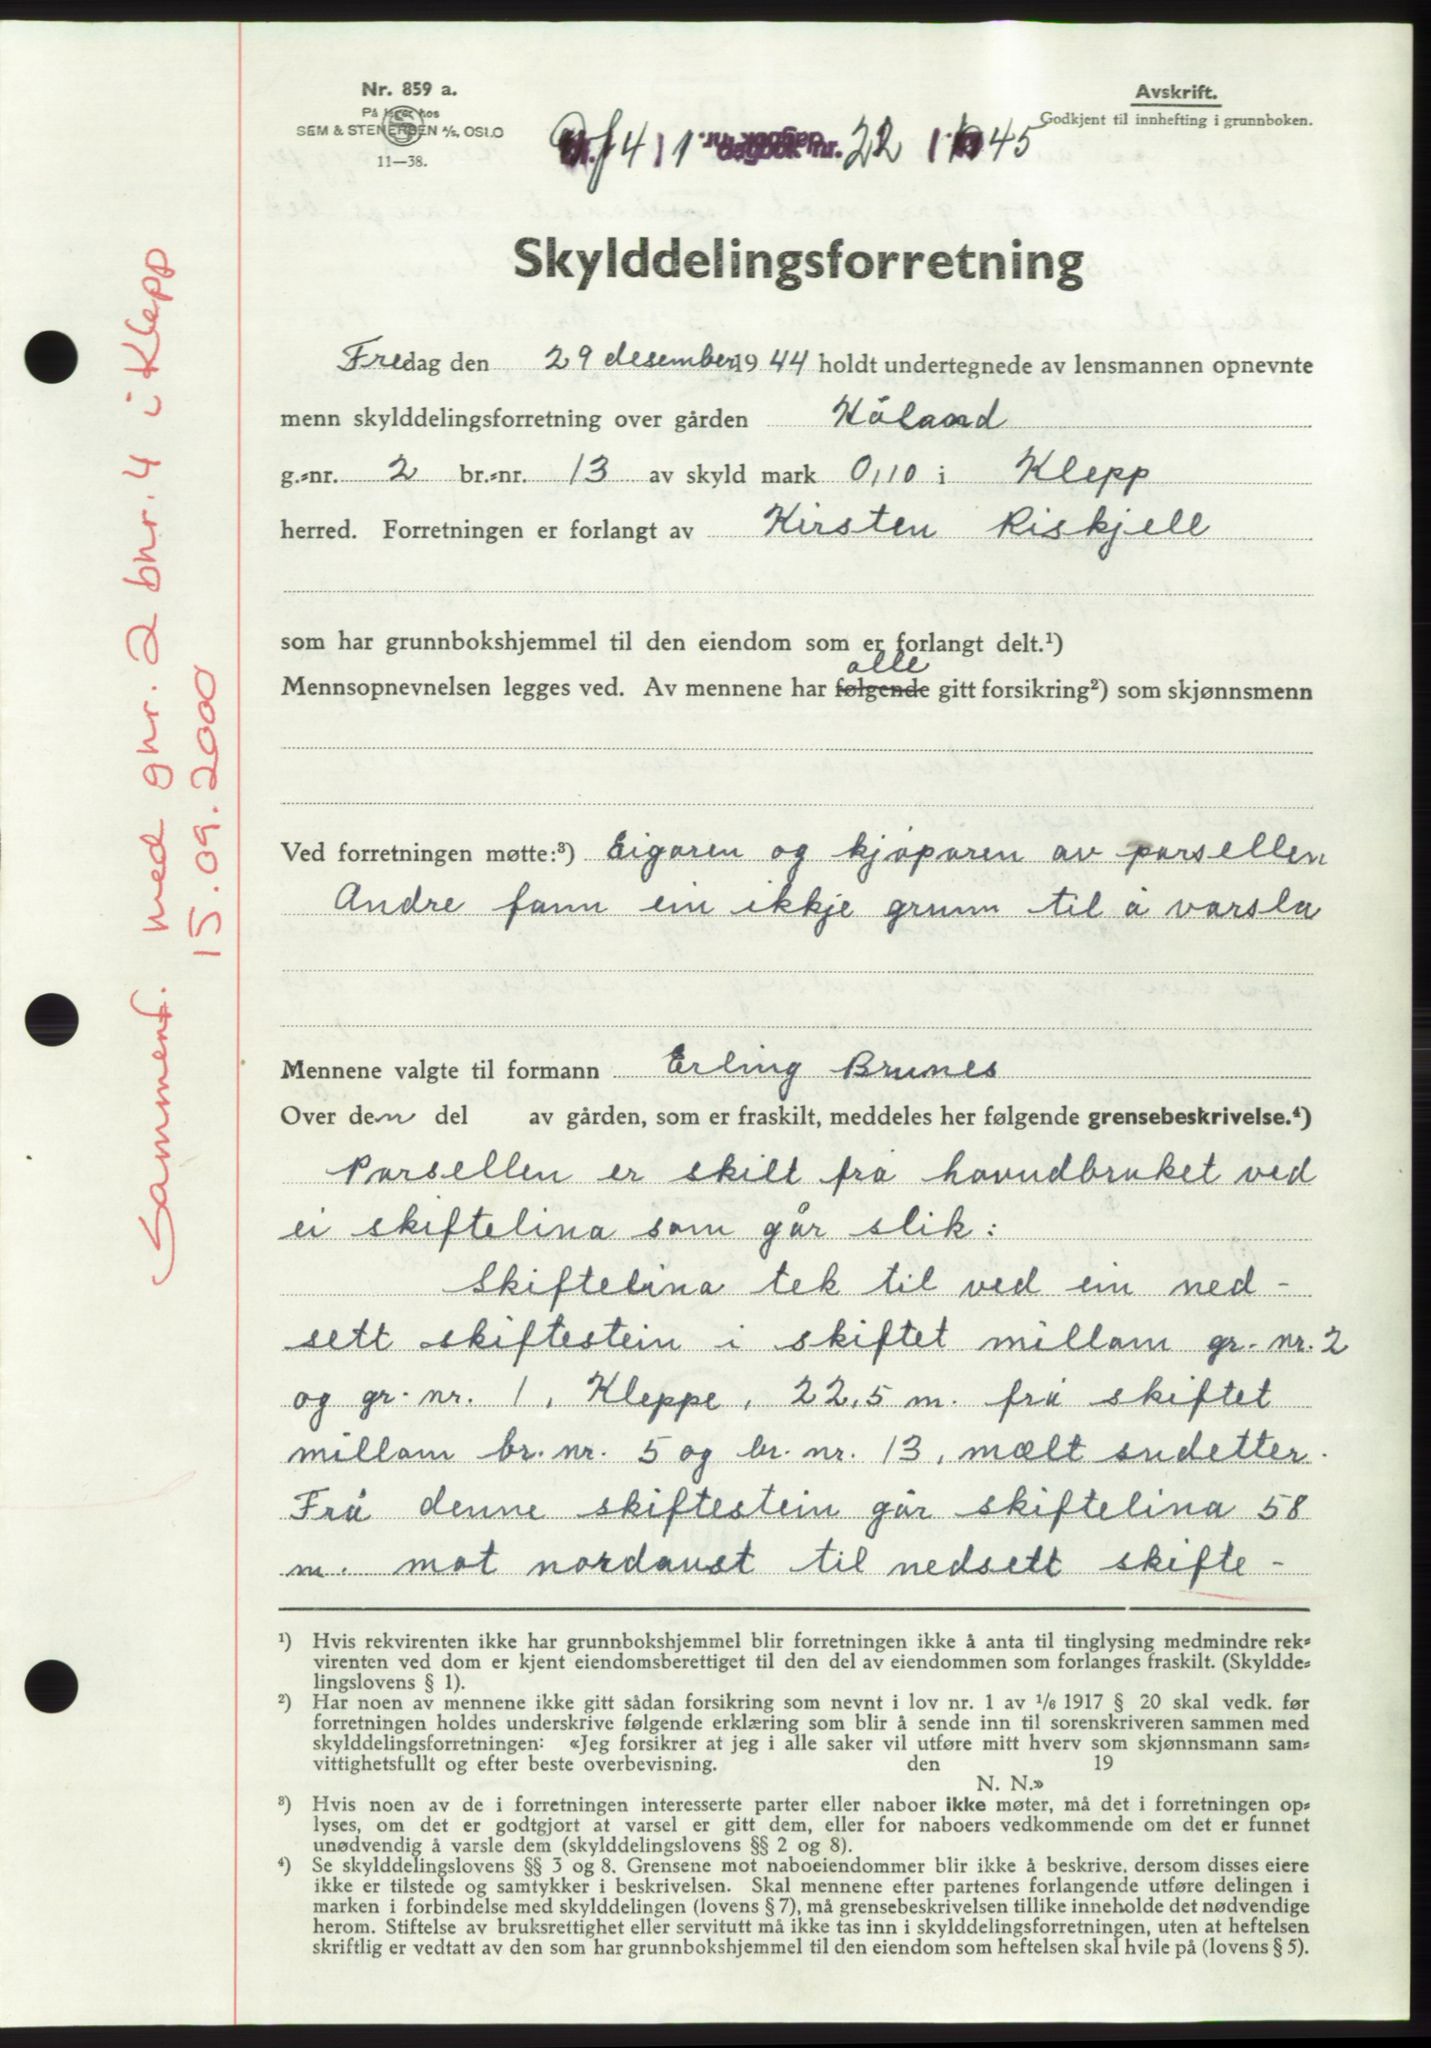 Nr. 859 a.
På lager hos
SEM & STENERSEN A/S, OSLO
11—38.
Avskrift.
Godkjent til innhefting i grunnboken.
411 dagbok nr. 22 1945
Skylddelingsforretning
Fredag den 29 desember 1944 holdt undertegnede av lensmannen opnevnte
menn skylddelingsforretning over gården Håland
g.-nr. 2 br.-nr. 13 av skyld mark 0,10 i Klepp
herred. Forretningen er forlangt av Kirsten Riskjell
som har grunnbokshjemmel til den eiendom som er forlangt delt.¹)
alle
Mennsopnevnelsen legges ved. Av mennene har følgende gitt forsikring²) som skjønnsmenn
Ved forretningen møtte:³) Eigaren og kjøparen av parsellen
Andre fann ein ikkje grunn til å varsla
Mennene valgte til formann Erling Brunes
Over den del av gården, som er fraskilt, meddeles her følgende grensebeskrivelse.⁴)
Parsellen er skilt frå hovudbruket ved
ei skiftelina som går slik:
Skiftelina tek til ved ein ned-
sett skiftestein i skiftet millom gr. nr. 2
og gr. nr. 1, Kleppe, 22,5 m. frå skiftet
millom br. nr. 5 og br. nr. 13, mælt sudetter.
Frå denne skiftestein går skiftelina 58
m. mot nordaust til nedsett skifte-
¹) Hvis rekvirenten ikke har grunnbokshjemmel blir forretningen ikke å anta til tinglysing medmindre rek-
virenten ved dom er kjent eiendomsberettiget til den del av eiendommen som forlanges fraskilt. (Skyldde-
lingslovens § 1).
²) Har noen av mennene ikke gitt sådan forsikring som nevnt i lov nr. 1 av 1/6 1917 § 20 skal vedk. før
forretningen holdes underskrive følgende erklæring som blir å sende inn til sorenskriveren sammen med
skylddelingsforretningen: «Jeg forsikrer at jeg i alle saker vil utføre mitt hverv som skjønnsmann sam-
vittighetsfullt og efter beste overbevisning. den 19
N. N.»
³) Hvis noen av de i forretningen interesserte parter eller naboer ikke møter, må det i forretningen op-
lyses, om det er godtgjort at varsel er gitt dem, eller for naboers vedkommende om det er funnet
unødvendig å varsle dem (skylddelingslovens §§ 2 og 8).
⁴) Se skylddelingslovens §§ 3 og 8. Grensene mot naboeiendommer blir ikke å beskrive, dersom disses eiere
ikke er tilstede og samtykker i beskrivelsen. Skal mennene efter partenes forlangende utføre delingen i
marken i forbindelse med skylddelingen (lovens § 7), må grensebeskrivelsen tillike inneholde det nødvendige
herom. Stiftelse av bruksrettighet eller servitutt må ikke tas inn i skylddelingsforretningen, uten at heftelsen
skriftlig er vedtatt av den som har grunnbokshjemmel til den eiendom som heftelsen skal hvile på (lovens § 5).
Sammenf. med gnr. 2 bnr. 4 i Klepp
15.09.2000